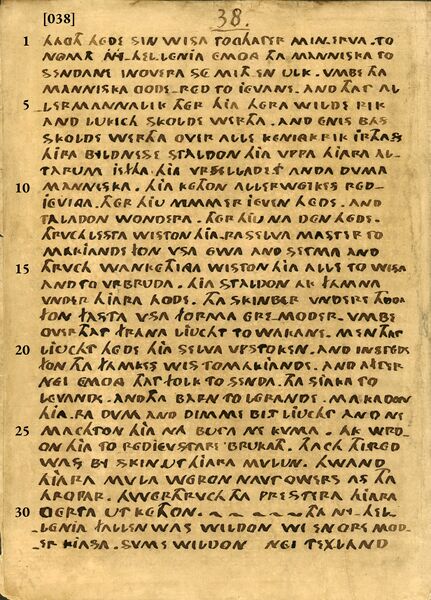 38.
[038]
1 HACH HEDE SIN WISA TOGHATER MIN.ERVA. TO
NOMA NY.HEL.LENIA EMONG THA MANNISKA TO
SENDANE INOVERA SE MITH EN ULK. VMBE THA
MANNISKA GODE.RED TO IEVANE. AND THAT AL
5 LERMANNALIK THER HIA HERA WILDE RIK
AND LUKICH SKOLDE WERTHA. AND ENIS BAS
SKOLDE WERTHA OVER ALLE KENIGKRIK IRTHAS
HIRA BYLDNESSE STALDON HIA VPPA HIARA AL-
TARUM IEFTHA HIA VRSELLADET ANDA DUMA
10 MANNISKA. HIA KETHON ALLERWEIKES RED-
IEVINGA. THER HIU NIMMER IEVEN HEDE. AND
TALADON WONDERA. THER HIU NA DEN HEDE.
THRVCH LESTA WISTON HIA.RASSELVA MASTER TO
MAKIANDE FON VSA EWA AND SETMA AND
15 THRVCH WANKETHINGA WISTON HIA ALLE TO WISA
AND TO VRBRUDA. HIA STALDON AK FAMNA
VNDER HIARA HODE. THA SKINBER VNDERE HODA
FON FASTA VSA FORMA ERE-MODER. VMBE
OVER THAT FRANA LIUCHT TO WAKANE. MEN THAT
20 LIUCHT HEDE HIA SELVA VPSTOKEN. AND INSTEDE
FON THA FAMKES WIS TO MAKIANDE. AND AFTER
NEI EMONG THAT FOLK TO SENDA. THA SIAKA TO
LEVANDE. ANDTHA BARN TO LERANDE. MAKADON
HIA.RA DUM AND DIMME BIT LIUCHT AND NE
25 MACHTON HIA NA BUTA NE KUMA. AK WRD-
ON HIA TO REDIEVSTARE BRUKATH. THACH THI RED
WAS BY SKIN UT HIARA MULUN. HWAND
HIARA MULA WERON NAVT OWERS AS THA
HROPAR. HWERTHRVCH THA PRESTERA HIARA
30 GERTA UTKETHON. THA NY-HEL-
LENIA FALLEN WAS WILDON WI EN ORE MOD-
ER KIASA. SVME WILDON NEI TEXLAND